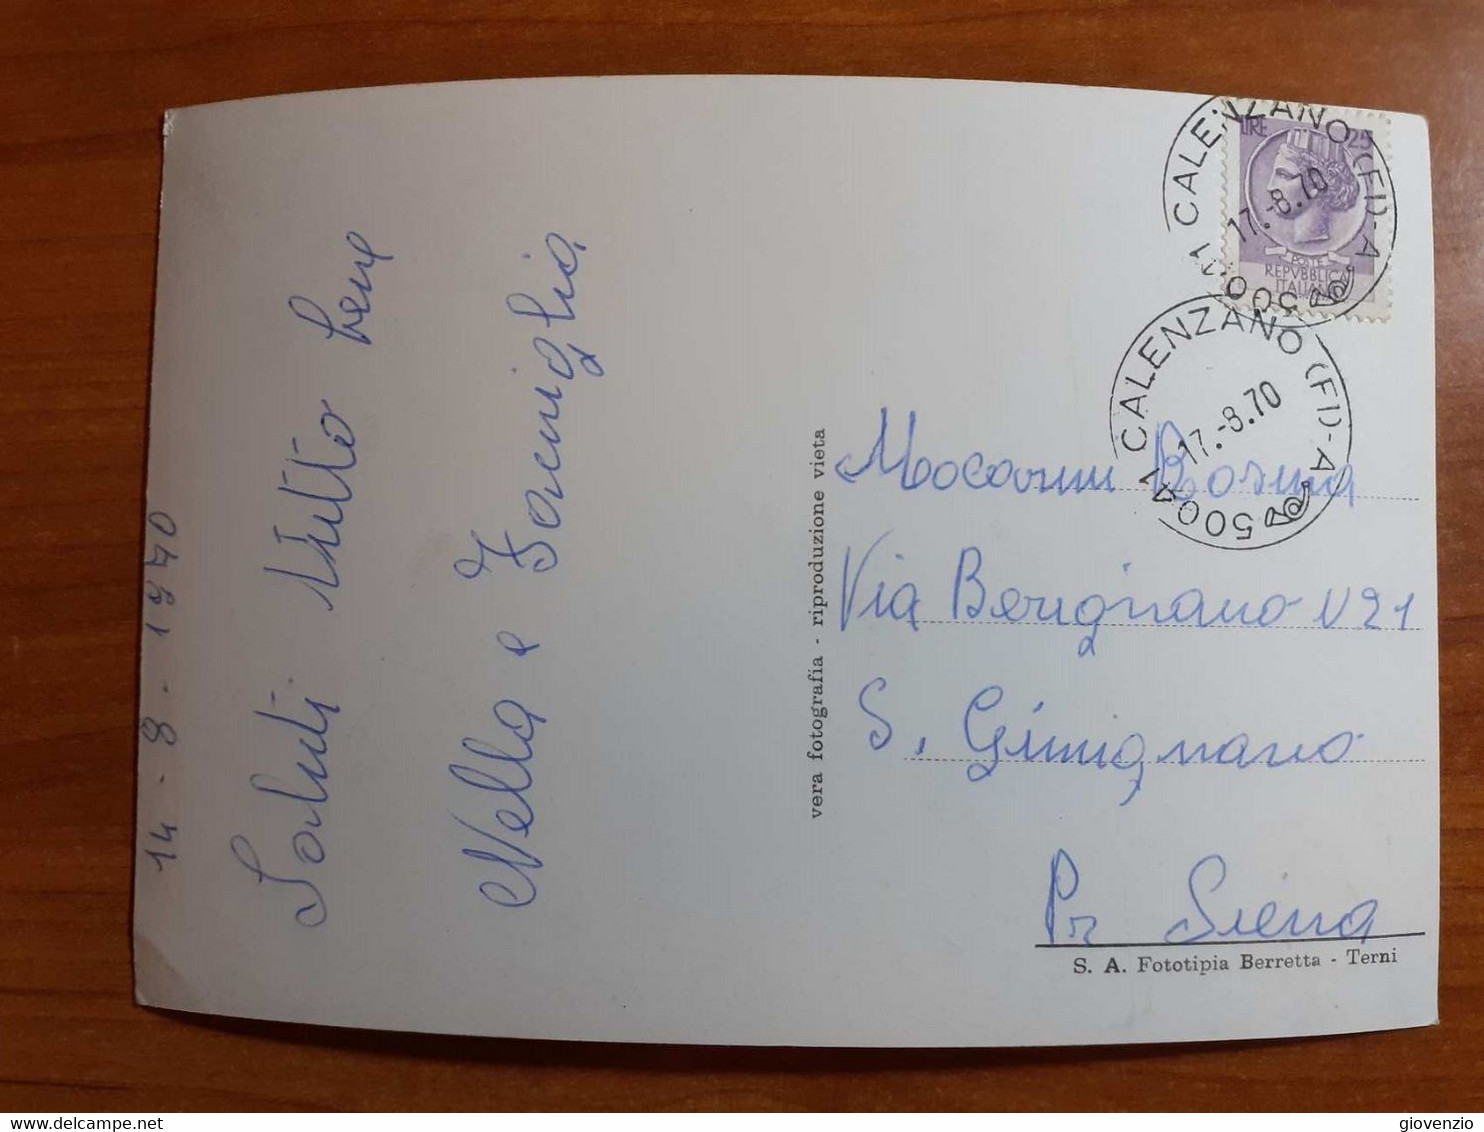 14 - 8 - 1970
Saluti tutto bene
Nella e Famiglia
vera fotografia - riproduzione vieta
LIRE 25
POSTE
REPVBBLICA
ITALIANA
50041 CALENZANO (FI) - A
17.-8.70
50041 CALENZANO (FI) - A
17.-8.70
Mocarini Rosina
Via Berignano N 21
S. Gimignano
Pr Siena
S. A. Fototipia Berretta - Terni
delcampe.net
giovenzio